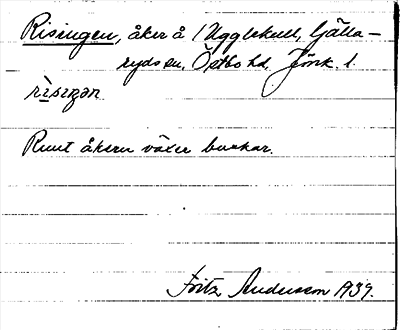 Risingen, åker å 1 Ugglekull, Gälla-
ryds sn, Östbo hd, Jönk. l.
rìsiŋən
Runt åkern växer buskar.
Fritz Andersson 1939.